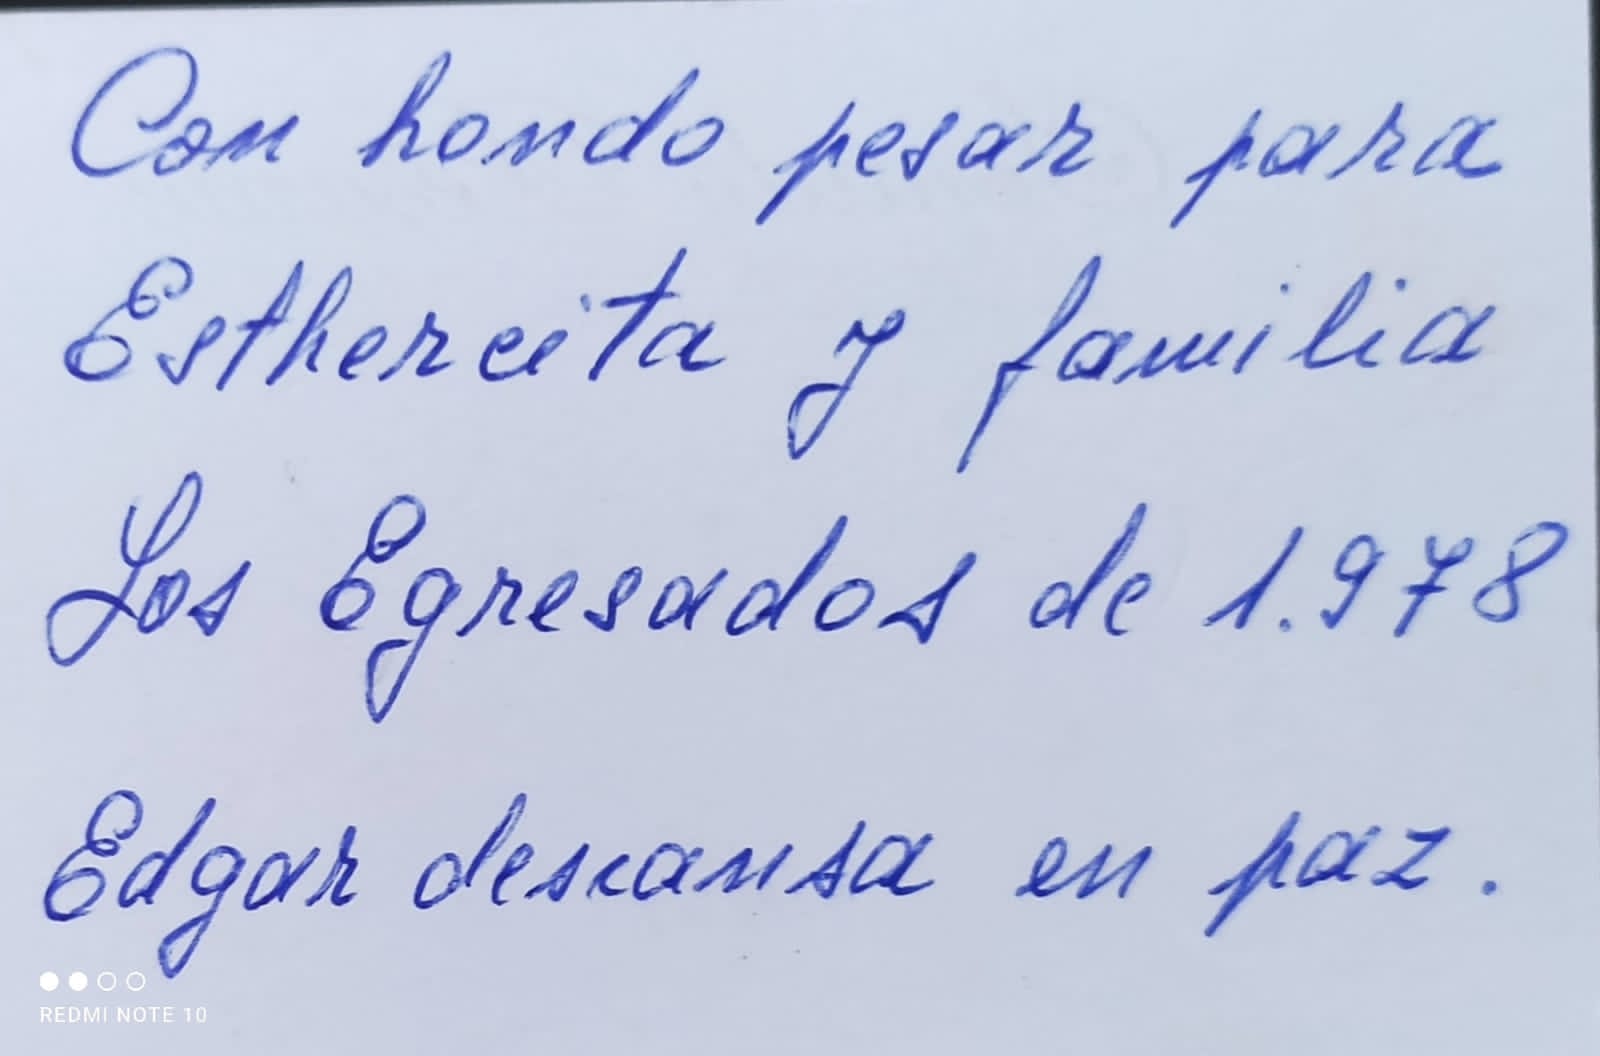 Con hondo pesar para
Esthercita y familia
Los Egresados de 1.978
Edgar descansa en paz.
REDMI NOTE 10